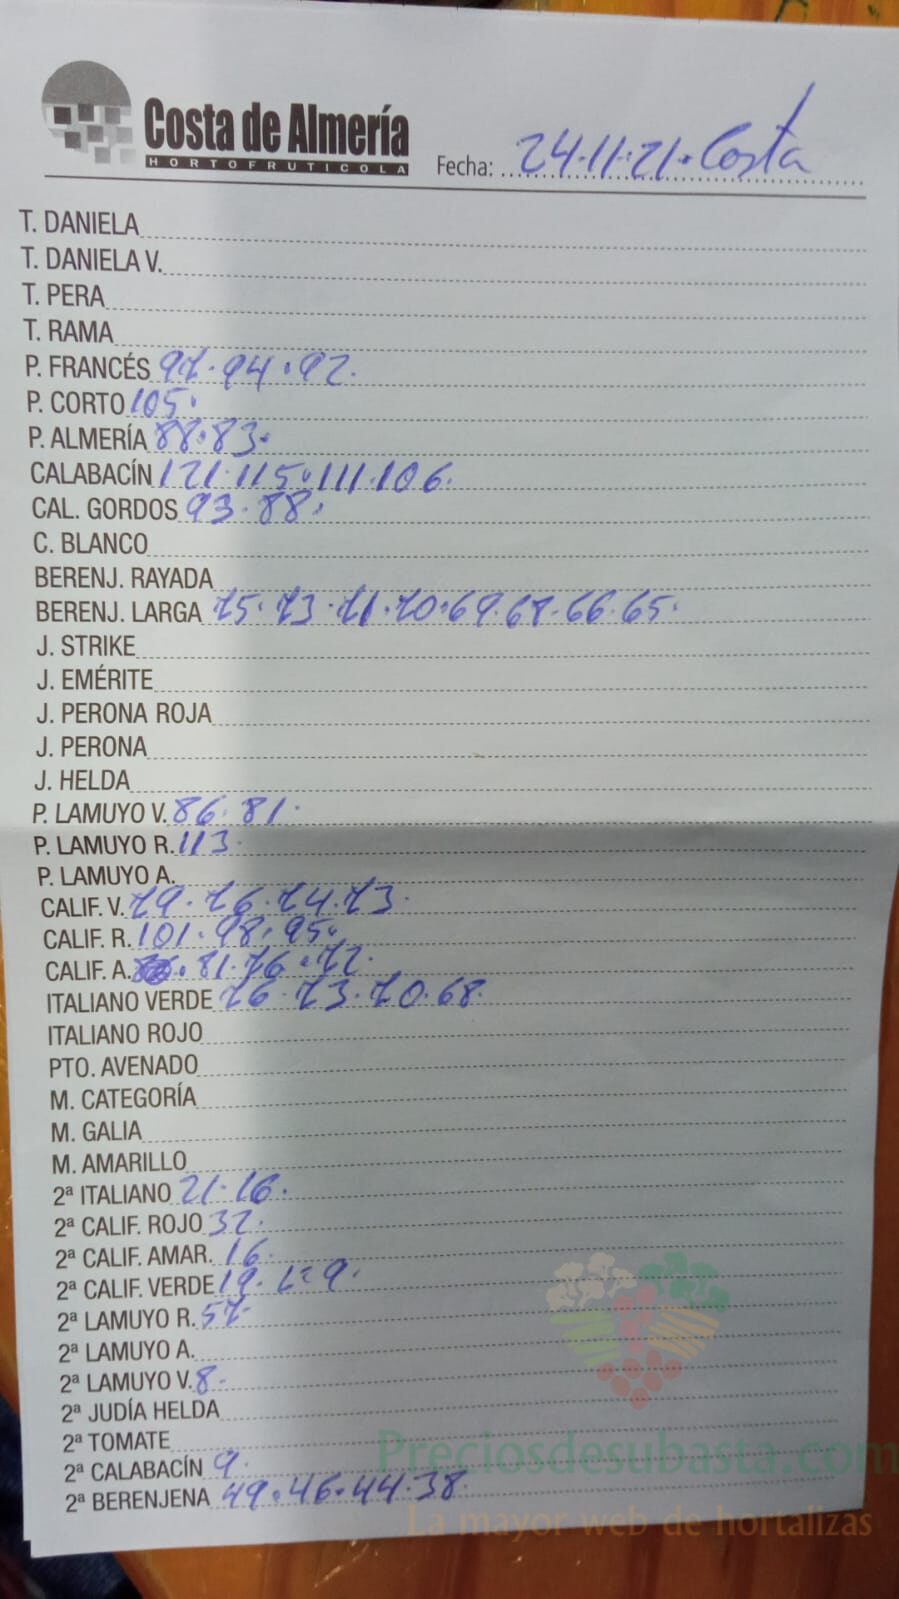 Costa de Almería
HORTOFRUTICOLA
Fecha: 24.11.21. Costa
T. DANIELA
T. DANIELA V.
T. PERA
T. RAMA
P. FRANCÉS 97. 94. 92.
P. CORTO 105.
P. ALMERÍA 88. 83.
CALABACÍN 121. 115. 111. 106.
CAL. GORDOS 93. 88.
C. BLANCO
BERENJ. RAYADA
BERENJ. LARGA 75. 73. 71. 70. 69. 67. 66. 65.
J. STRIKE
J. EMÉRITE
J. PERONA ROJA
J. PERONA
J. HELDA
P. LAMUYO V. 86. 81.
P. LAMUYO R. 113.
P. LAMUYO A.
CALIF. V. 79. 76. 74. 73.
CALIF. R. 101. 98. 95.
CALIF. A. 81. 76. 72.
ITALIANO VERDE 76. 73. 70. 68.
ITALIANO ROJO
PTO. AVENADO
M. CATEGORÍA
M. GALIA
M. AMARILLO
2ª ITALIANO 21. 16.
2ª CALIF. ROJO 32.
2ª CALIF. AMAR. 16.
2ª CALIF. VERDE 19. 9.
2ª LAMUYO R. 57.
2ª LAMUYO A.
2ª LAMUYO V. 8.
2ª JUDÍA HELDA
2ª TOMATE
2ª CALABACÍN 9.
2ª BERENJENA 49. 46. 44. 38.
Preciosdesubasta.com
La mayor web de hortalizas